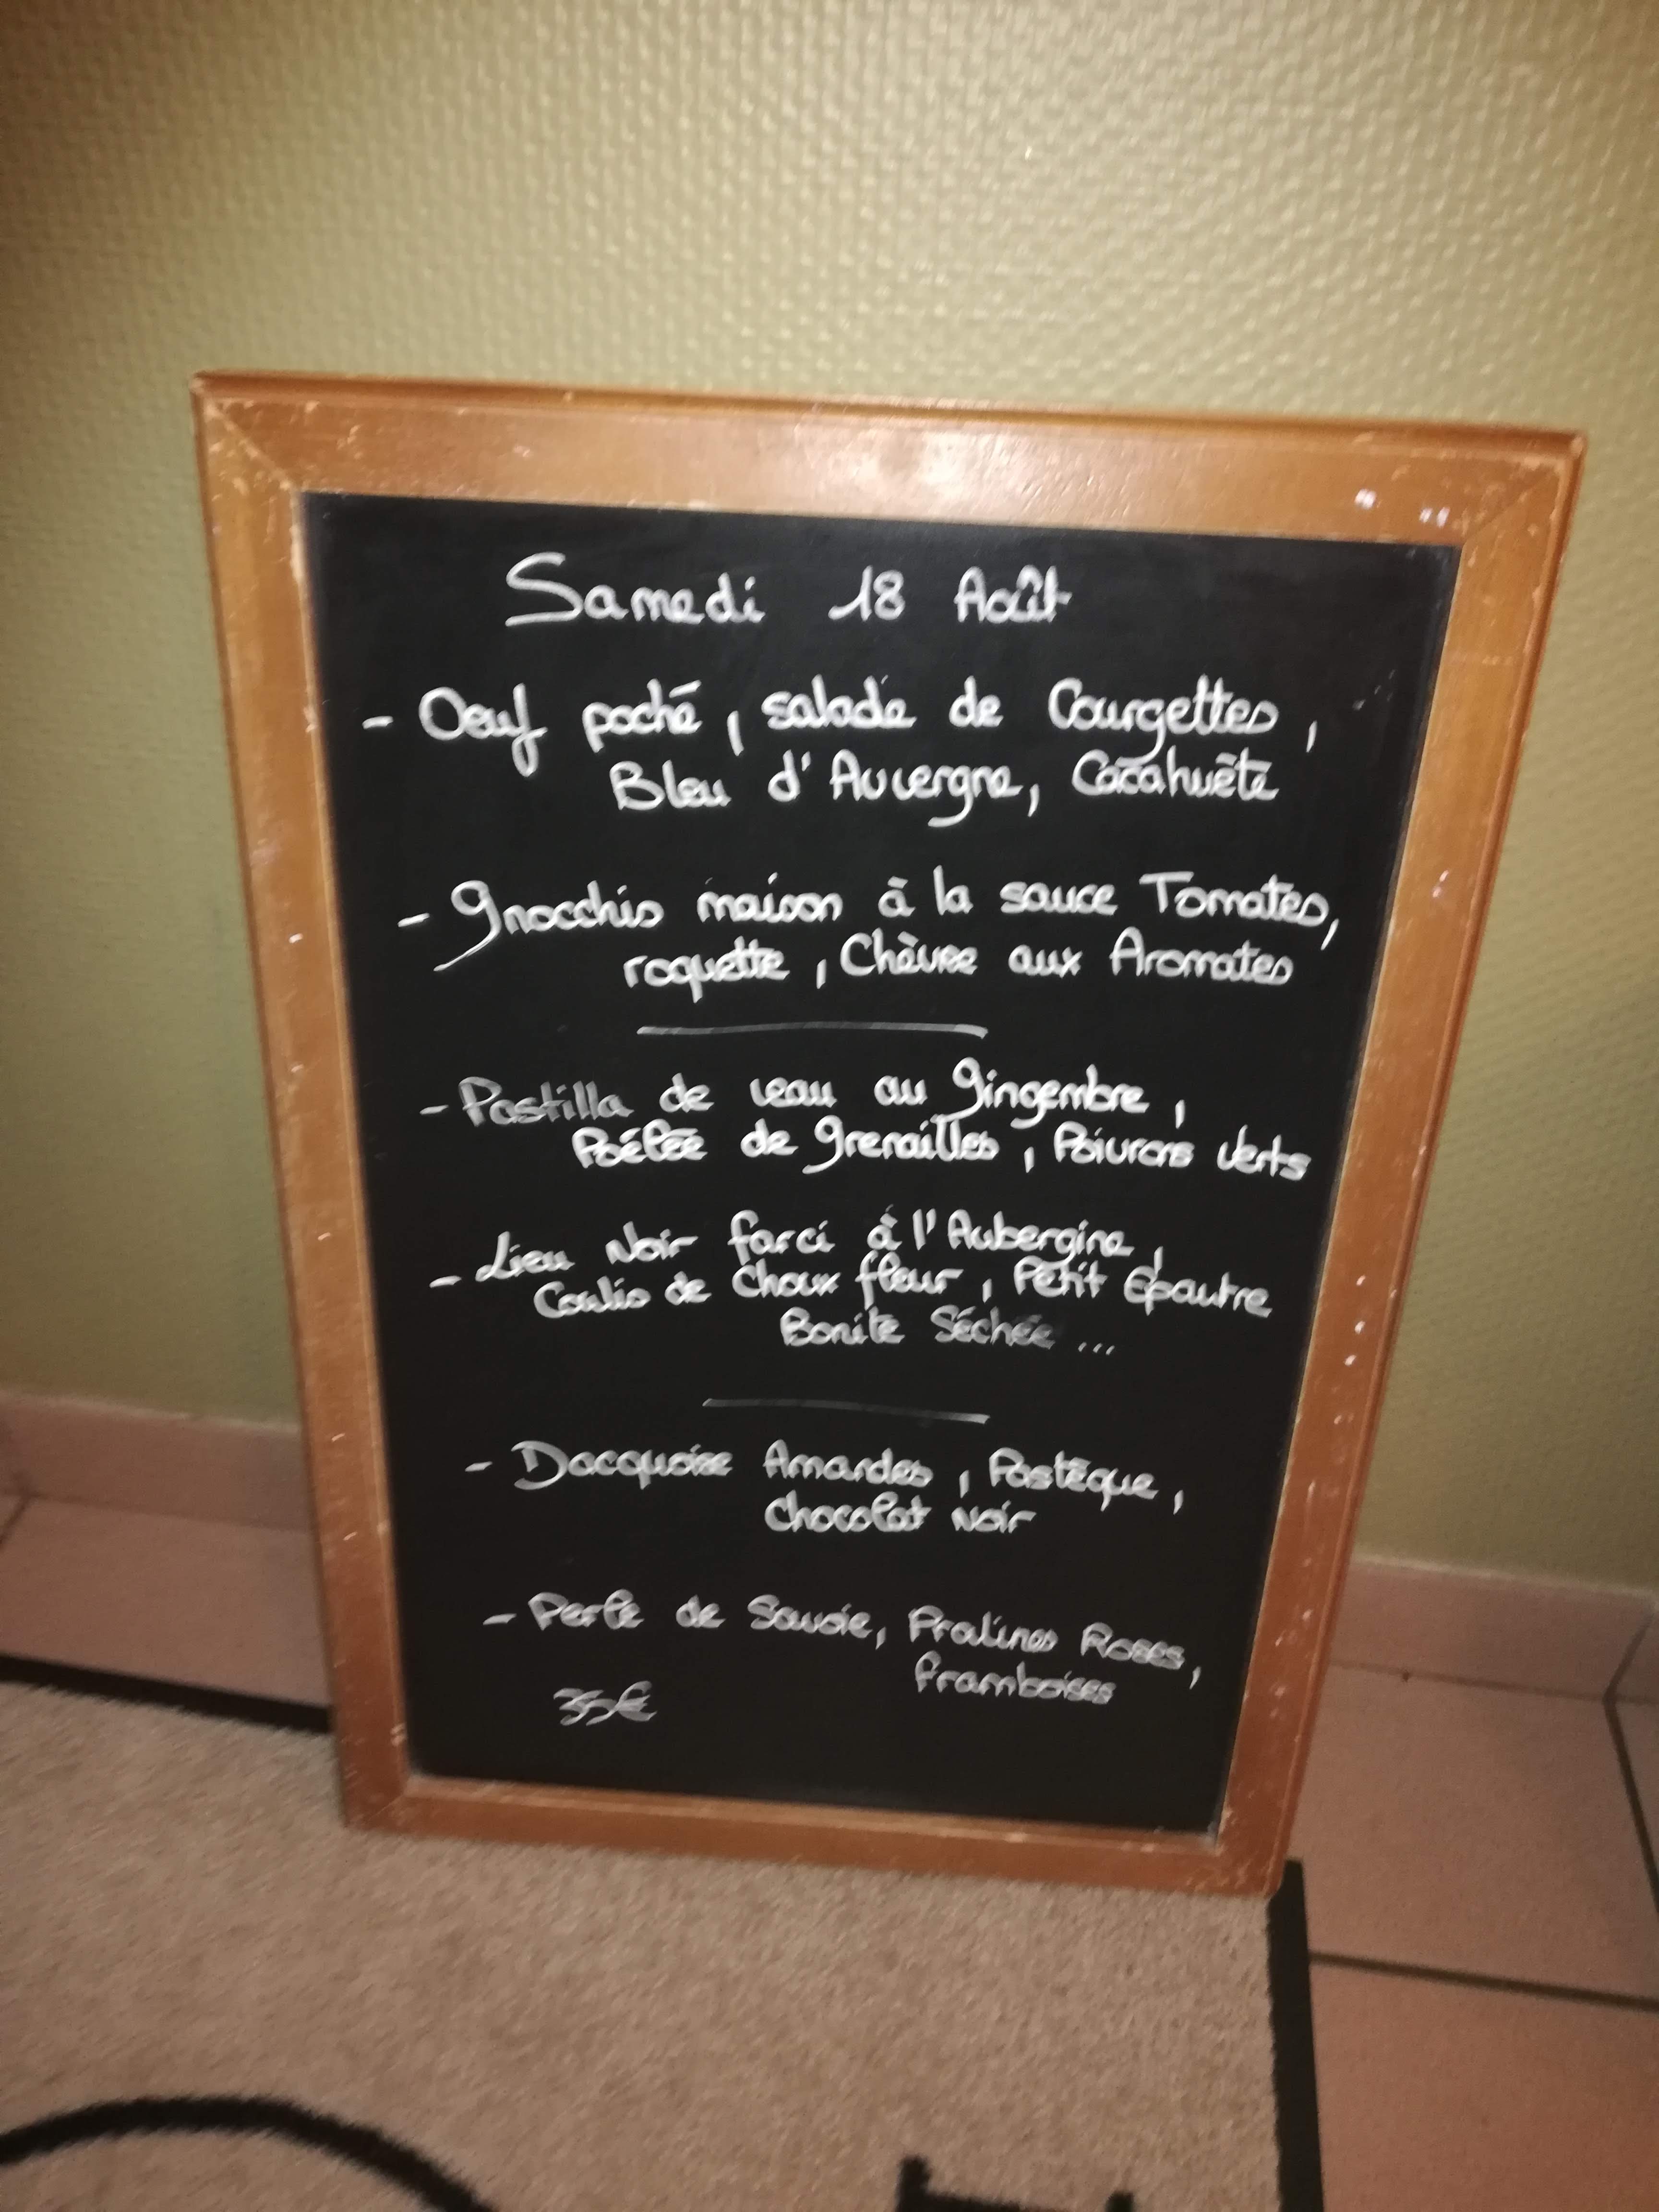 Samedi 18 Août
- Oeuf poché, salade de Courgettes,
Bleu d'Auvergne, Cacahuète
- Gnocchis maison à la sauce Tomates,
roquette, Chèvre aux Aromates
- Pastilla de veau au Gingembre,
Poélée de grenailles, Poivrons verts
- Lieu Noir farci à l'Aubergine,
Coulis de Choux fleur, Petit Epautre
Bonite Séchée ...
- Dacquoise Amandes, Pastèque,
Chocolat Noir
- Perle de Savoie, Pralines Roses,
framboises
35€